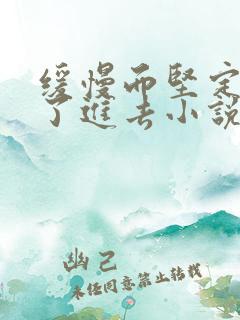 缓慢而坚定
了进去小说
幽己
未经同意禁止转载